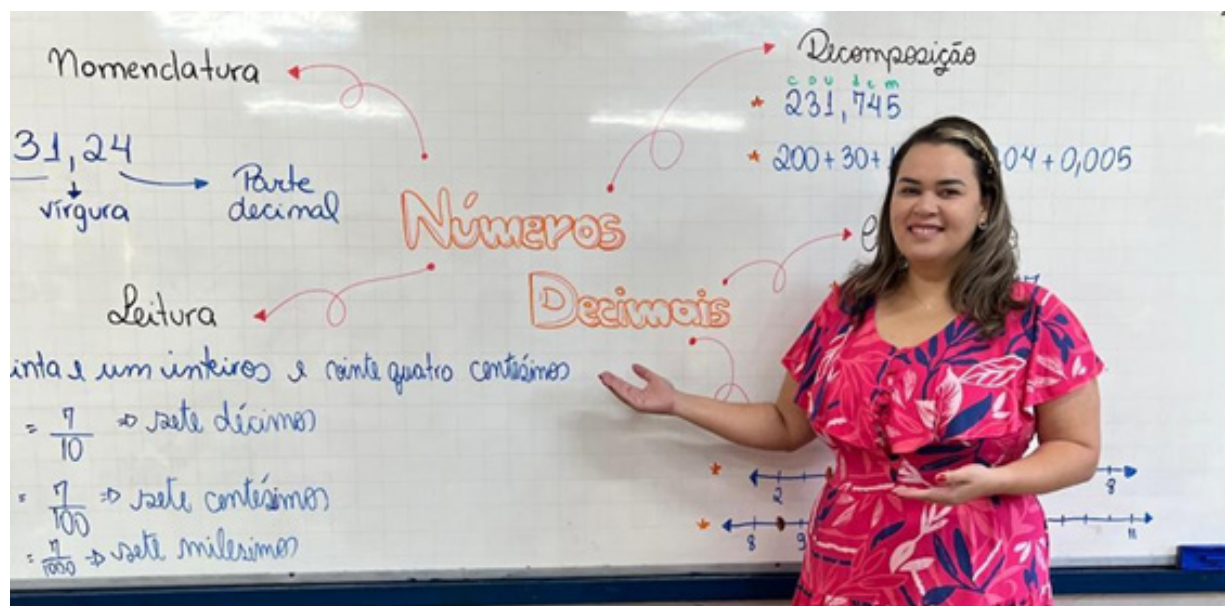 Nomenclatura
31,24
vírgura
Parte
decimal
Leitura
inta e um inteiros e vinte quatro centésimos
= 7/10 => sete décimos
= 7/100 => sete centésimos
= 7/1000 => sete milesimos
Números
Decimais
Decomposição
c d u d c m
* 231,745
* 200+30+ 04+0,005
2 8
8 9 11